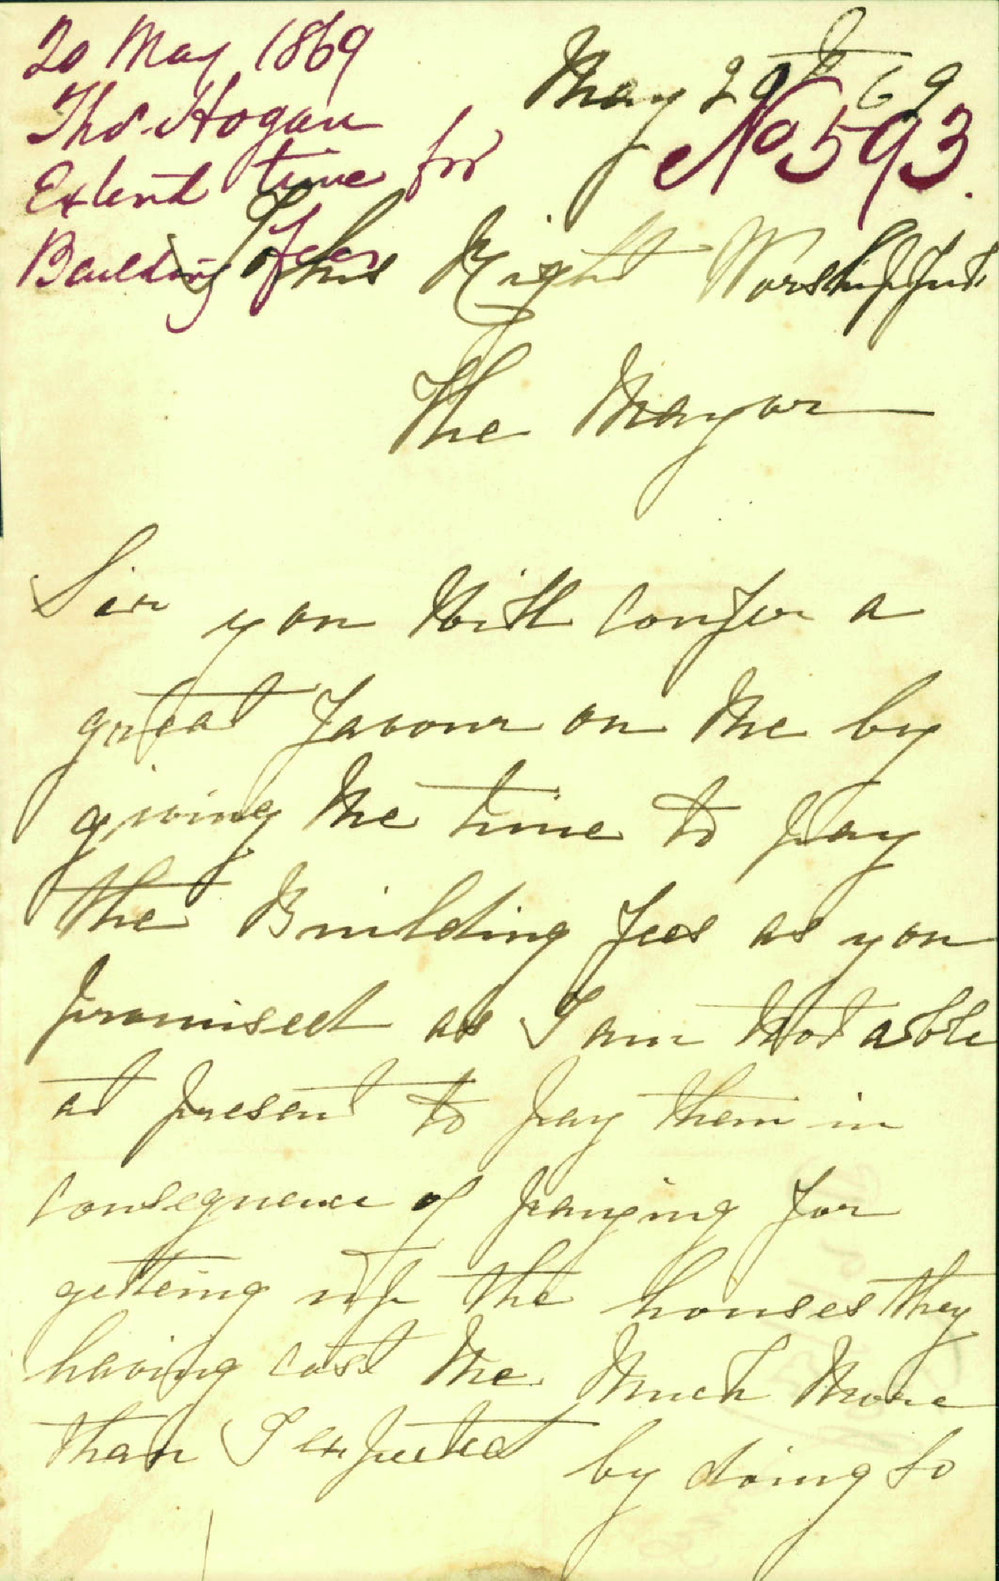 20 May 1869
Thos Hogan
Extend time for
Building fees
May 20th 69
No 593.
To his Right Worshipful
The Mayor
Sir you Will confer a
great favour on Me by
giving Me time to pay
the Building fees as you
promised as I am Not able
at present to pay them in
consequence of paying for
getteing up the houses they
having cost Me Much More
than I expected by doing so